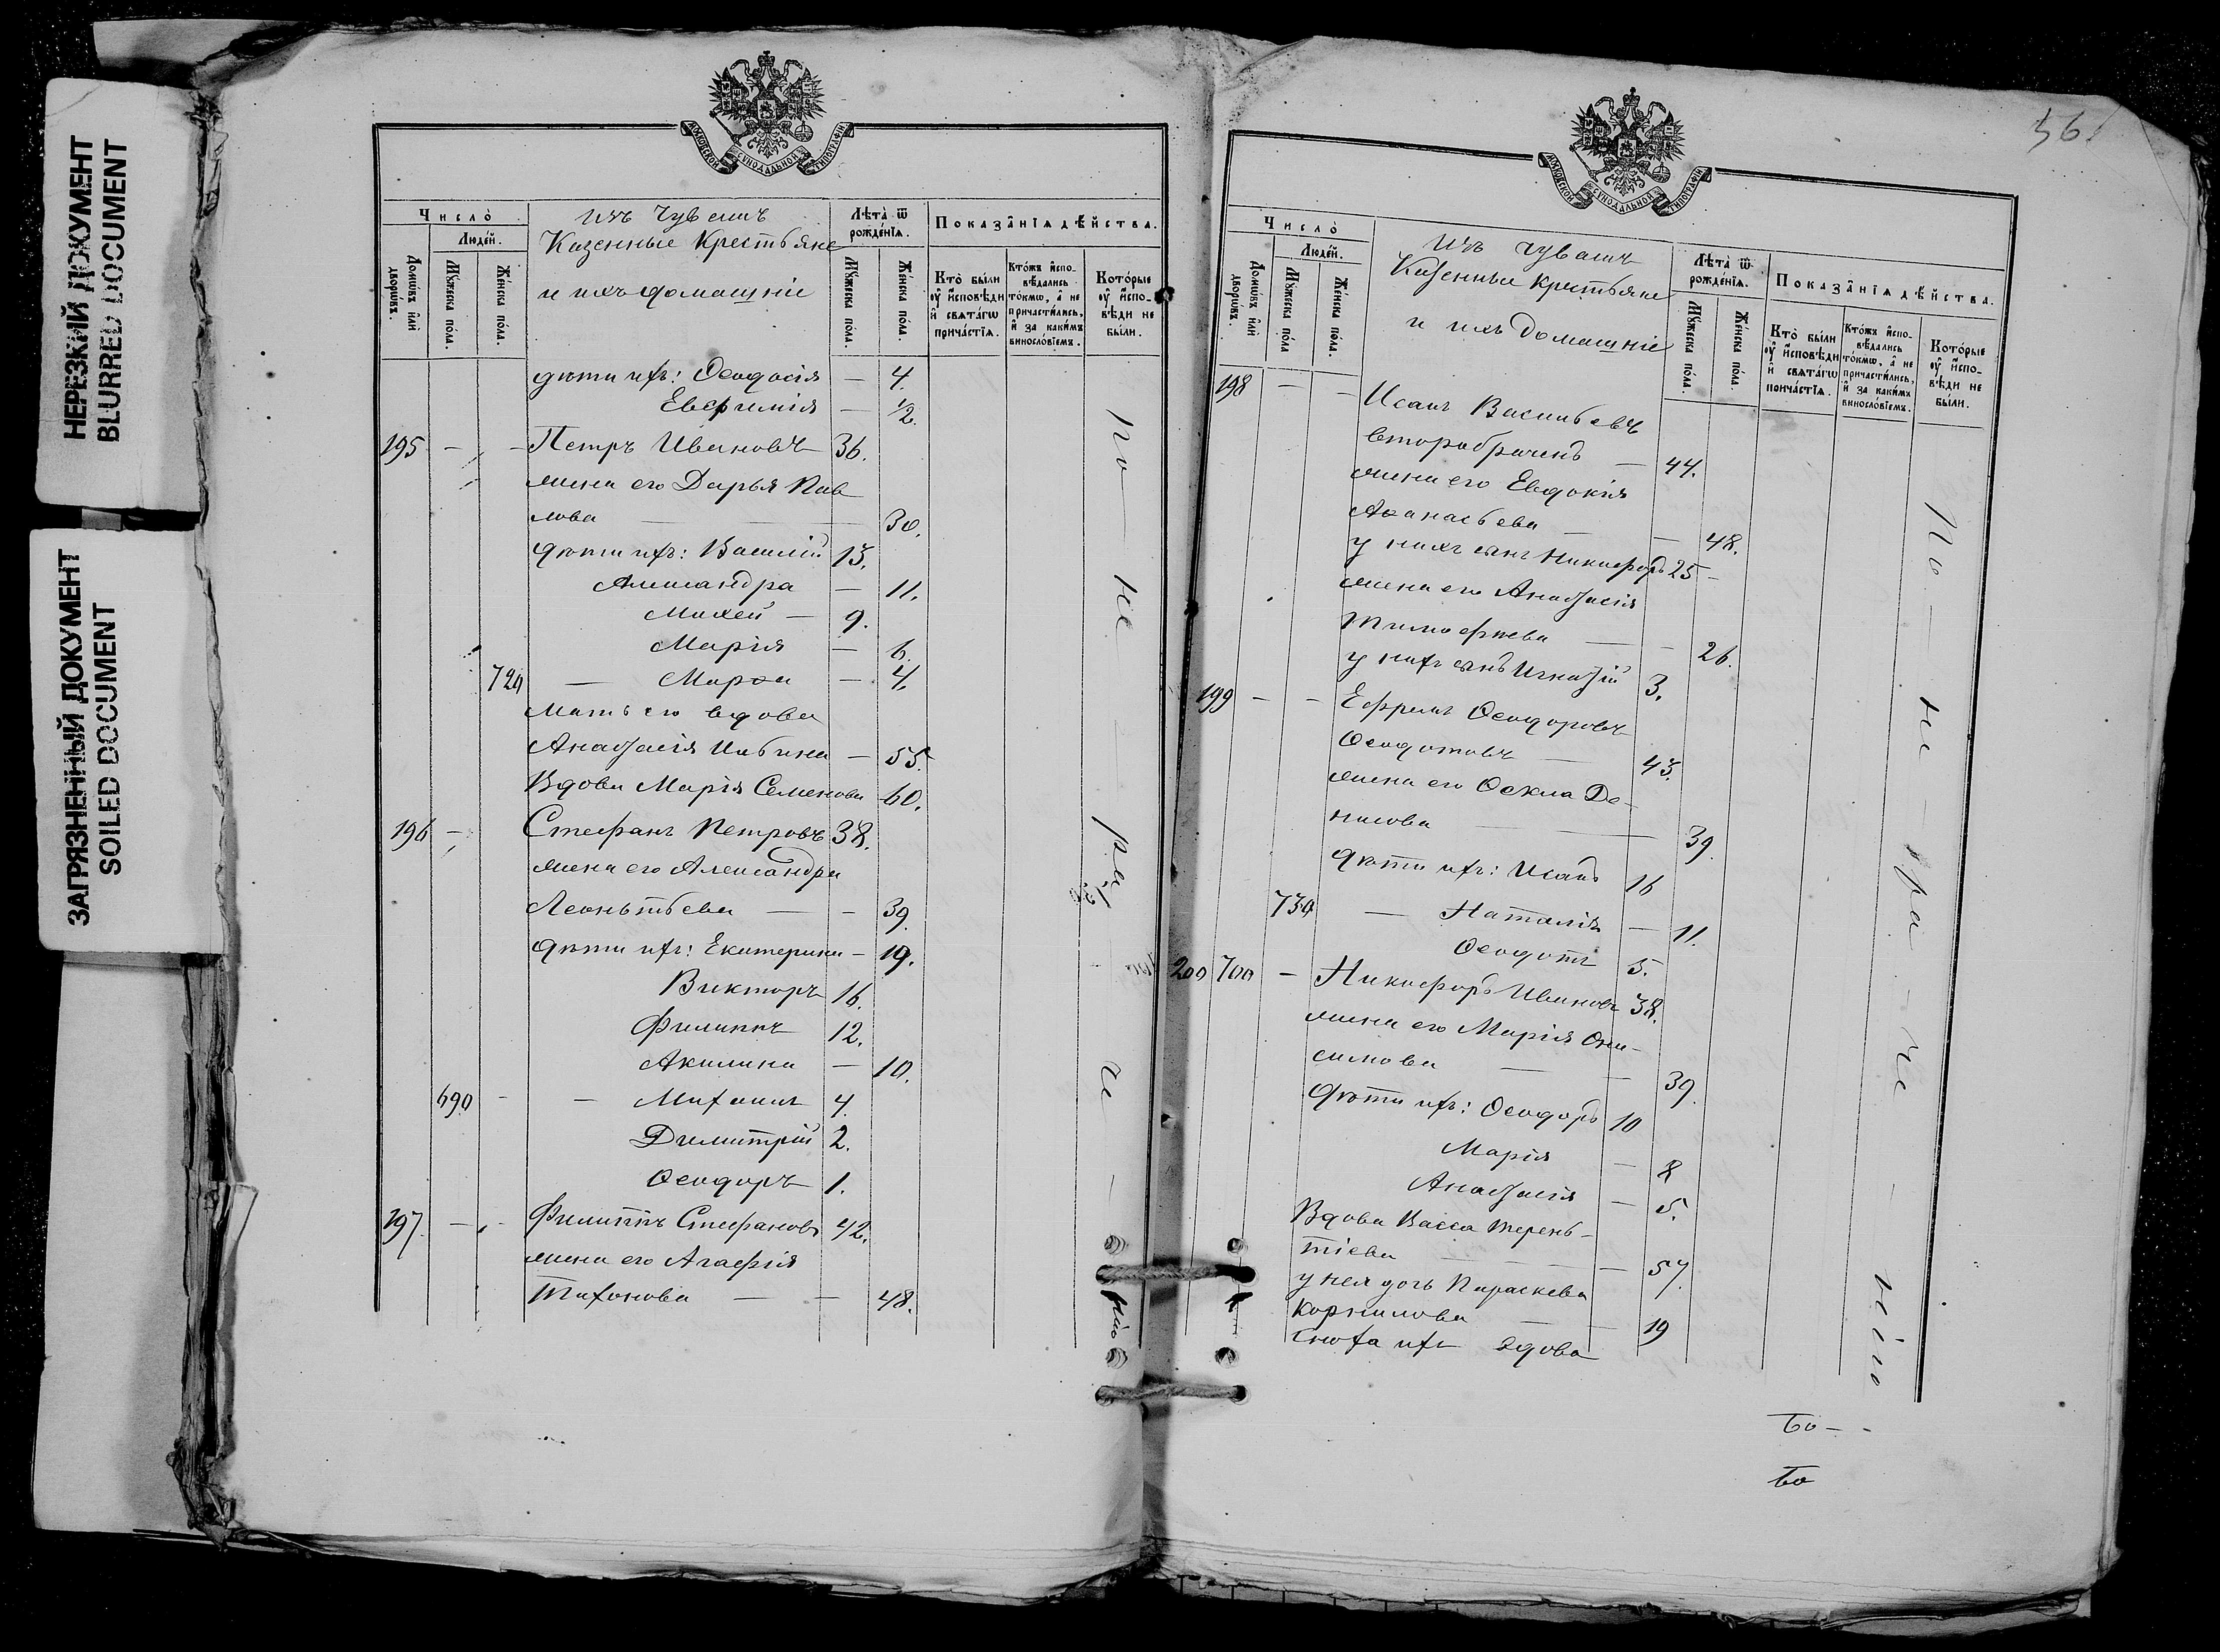 НЕРЕЗКИЙ ДОКУМЕНТ
BLURRED DOCUMENT
ЗАГРЯЗНЕННЫЙ ДОКУМЕНТ
SOILED DOCUMENT
МОСКОВСКОЙ СѴНОДАЛЬНОЙ ТИПОГРАФІИ
Число̀
Люде́й.
Домѡ́въ и҆лѝ дворѡ́въ.
Мꙋ́жеска по́ла.
Же́нска по́ла.
изъ Чувашъ
Казенные Крестьяне
и ихъ домашніе
Лѣта̀ ѿ рожде́нїѧ.
Мꙋ́жеска по́ла.
Же́нска по́ла.
Показа̑нїѧ дѣ́йства.
Кто̀ бы́ли оу҆ и҆́сповѣди и҆ свѧта́гѡ прича́стїѧ.
Кто́жъ и҆спо-вѣ́дались то́кмѡ, а҆ не причасти́лись, и҆ за каки́мъ винословїемъ.
Кото́рые оу҆ и҆́спо-вѣди не бы́ли.
дѣти ихъ: Ѳеодосія — 4.
Евфимія — 1/2.
195 — — Петръ Ивановъ 36.
жена его Дарья Пав
лова — 30.
дѣти ихъ: Василій 13.
Александра — 11.
Михей — 9.
Марія — 6.
720 — Марѳа — 4.
Мать его вдова
Анастасія Ильина — 55.
Вдова Марія Семенова 60.
196 — Стефанъ Петровъ 38.
жена его Александра
Леонтьева — — 39.
дѣти ихъ: Екатерина — 19.
Викторъ 16.
Филиппъ 12.
Акилина — 10.
690 — — Михаилъ 4.
Димитрій 2.
Ѳеодоръ 1.
197. — — Филиппъ Стефановъ 42.
жена его Агафія
Тихонова — — 48.
по — не — ра — и —
нію
56.
МОСКОВСКОЙ СѴНОДАЛЬНОЙ ТИПОГРАФІИ
Число̀
Люде́й.
Домѡ́въ и҆лѝ дворѡ́въ.
Мꙋ́жеска по́ла
Же́нска по́ла.
Изъ Чувашъ
Казенные Крестьяне
и ихъ домашніе
Лѣта̀ ѿ рожде́нїѧ.
Мꙋ́жеска по́ла.
Же́нска по́ла.
Показа̑нїѧ дѣ́йства.
Кто̀ бы́ли оу҆ и҆́сповѣди и҆ свѧта́гѡ прича́стїѧ.
Кто́жъ и҆спо-вѣ́дались то́кмѡ, а҆ не причасти́лись, и҆ за каки́мъ винословїемъ.
Кото́рые оу҆ и҆́спо-вѣди не бы́ли.
198 — — Исаія Васильевъ
вторабраченъ — 44.
жена его Евдокія
Аѳанасьева — 48.
у нихъ сынъ Никифоръ 25 —
жена его Анастасія
Тимофеева — — 26.
у нихъ сынъ Игнатій 3.
199 — — Ефремъ Ѳеодоровъ
Ѳеодотовъ — 43.
жена его Ѳекла Де-
нисова — 39.
дѣти ихъ: Исаія 16
730 — Наталія — 11.
Ѳеодотъ 5.
200 700 — Никифоръ Ивановъ 38.
жена его Марія Они-
симова — — 39.
Дѣти ихъ: Ѳеодоръ 10
Марія — 8
Анастасія — 5.
Вдова Васса Терень-
тіева — — 57.
у нея дочь Параскева
Корнилова — — 19
Сноха ихъ вдова
По — не — ра — че — нію
Во —
Во